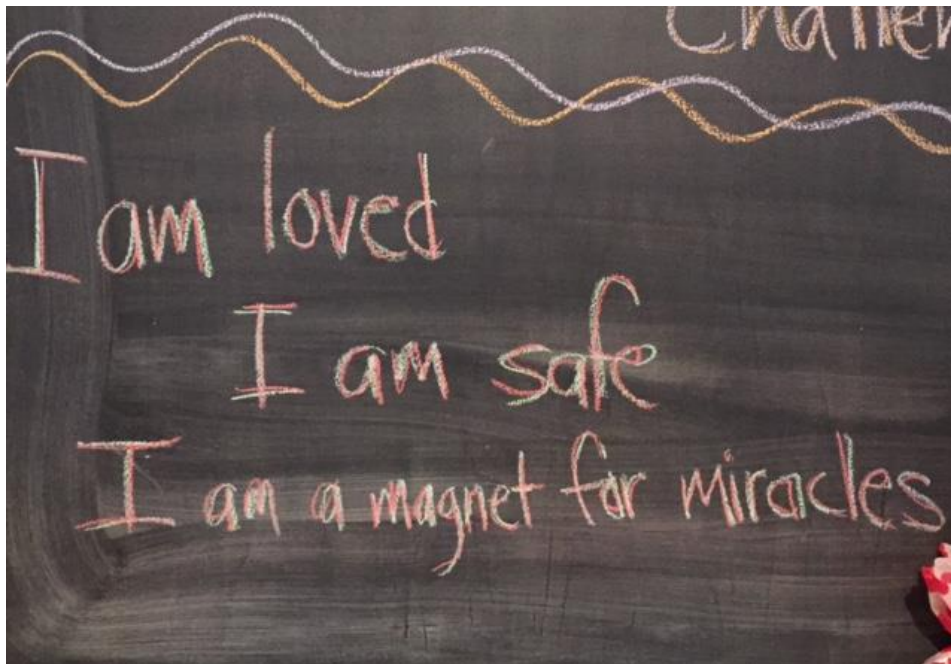 I am loved
I am safe
I am a magnet for miracles